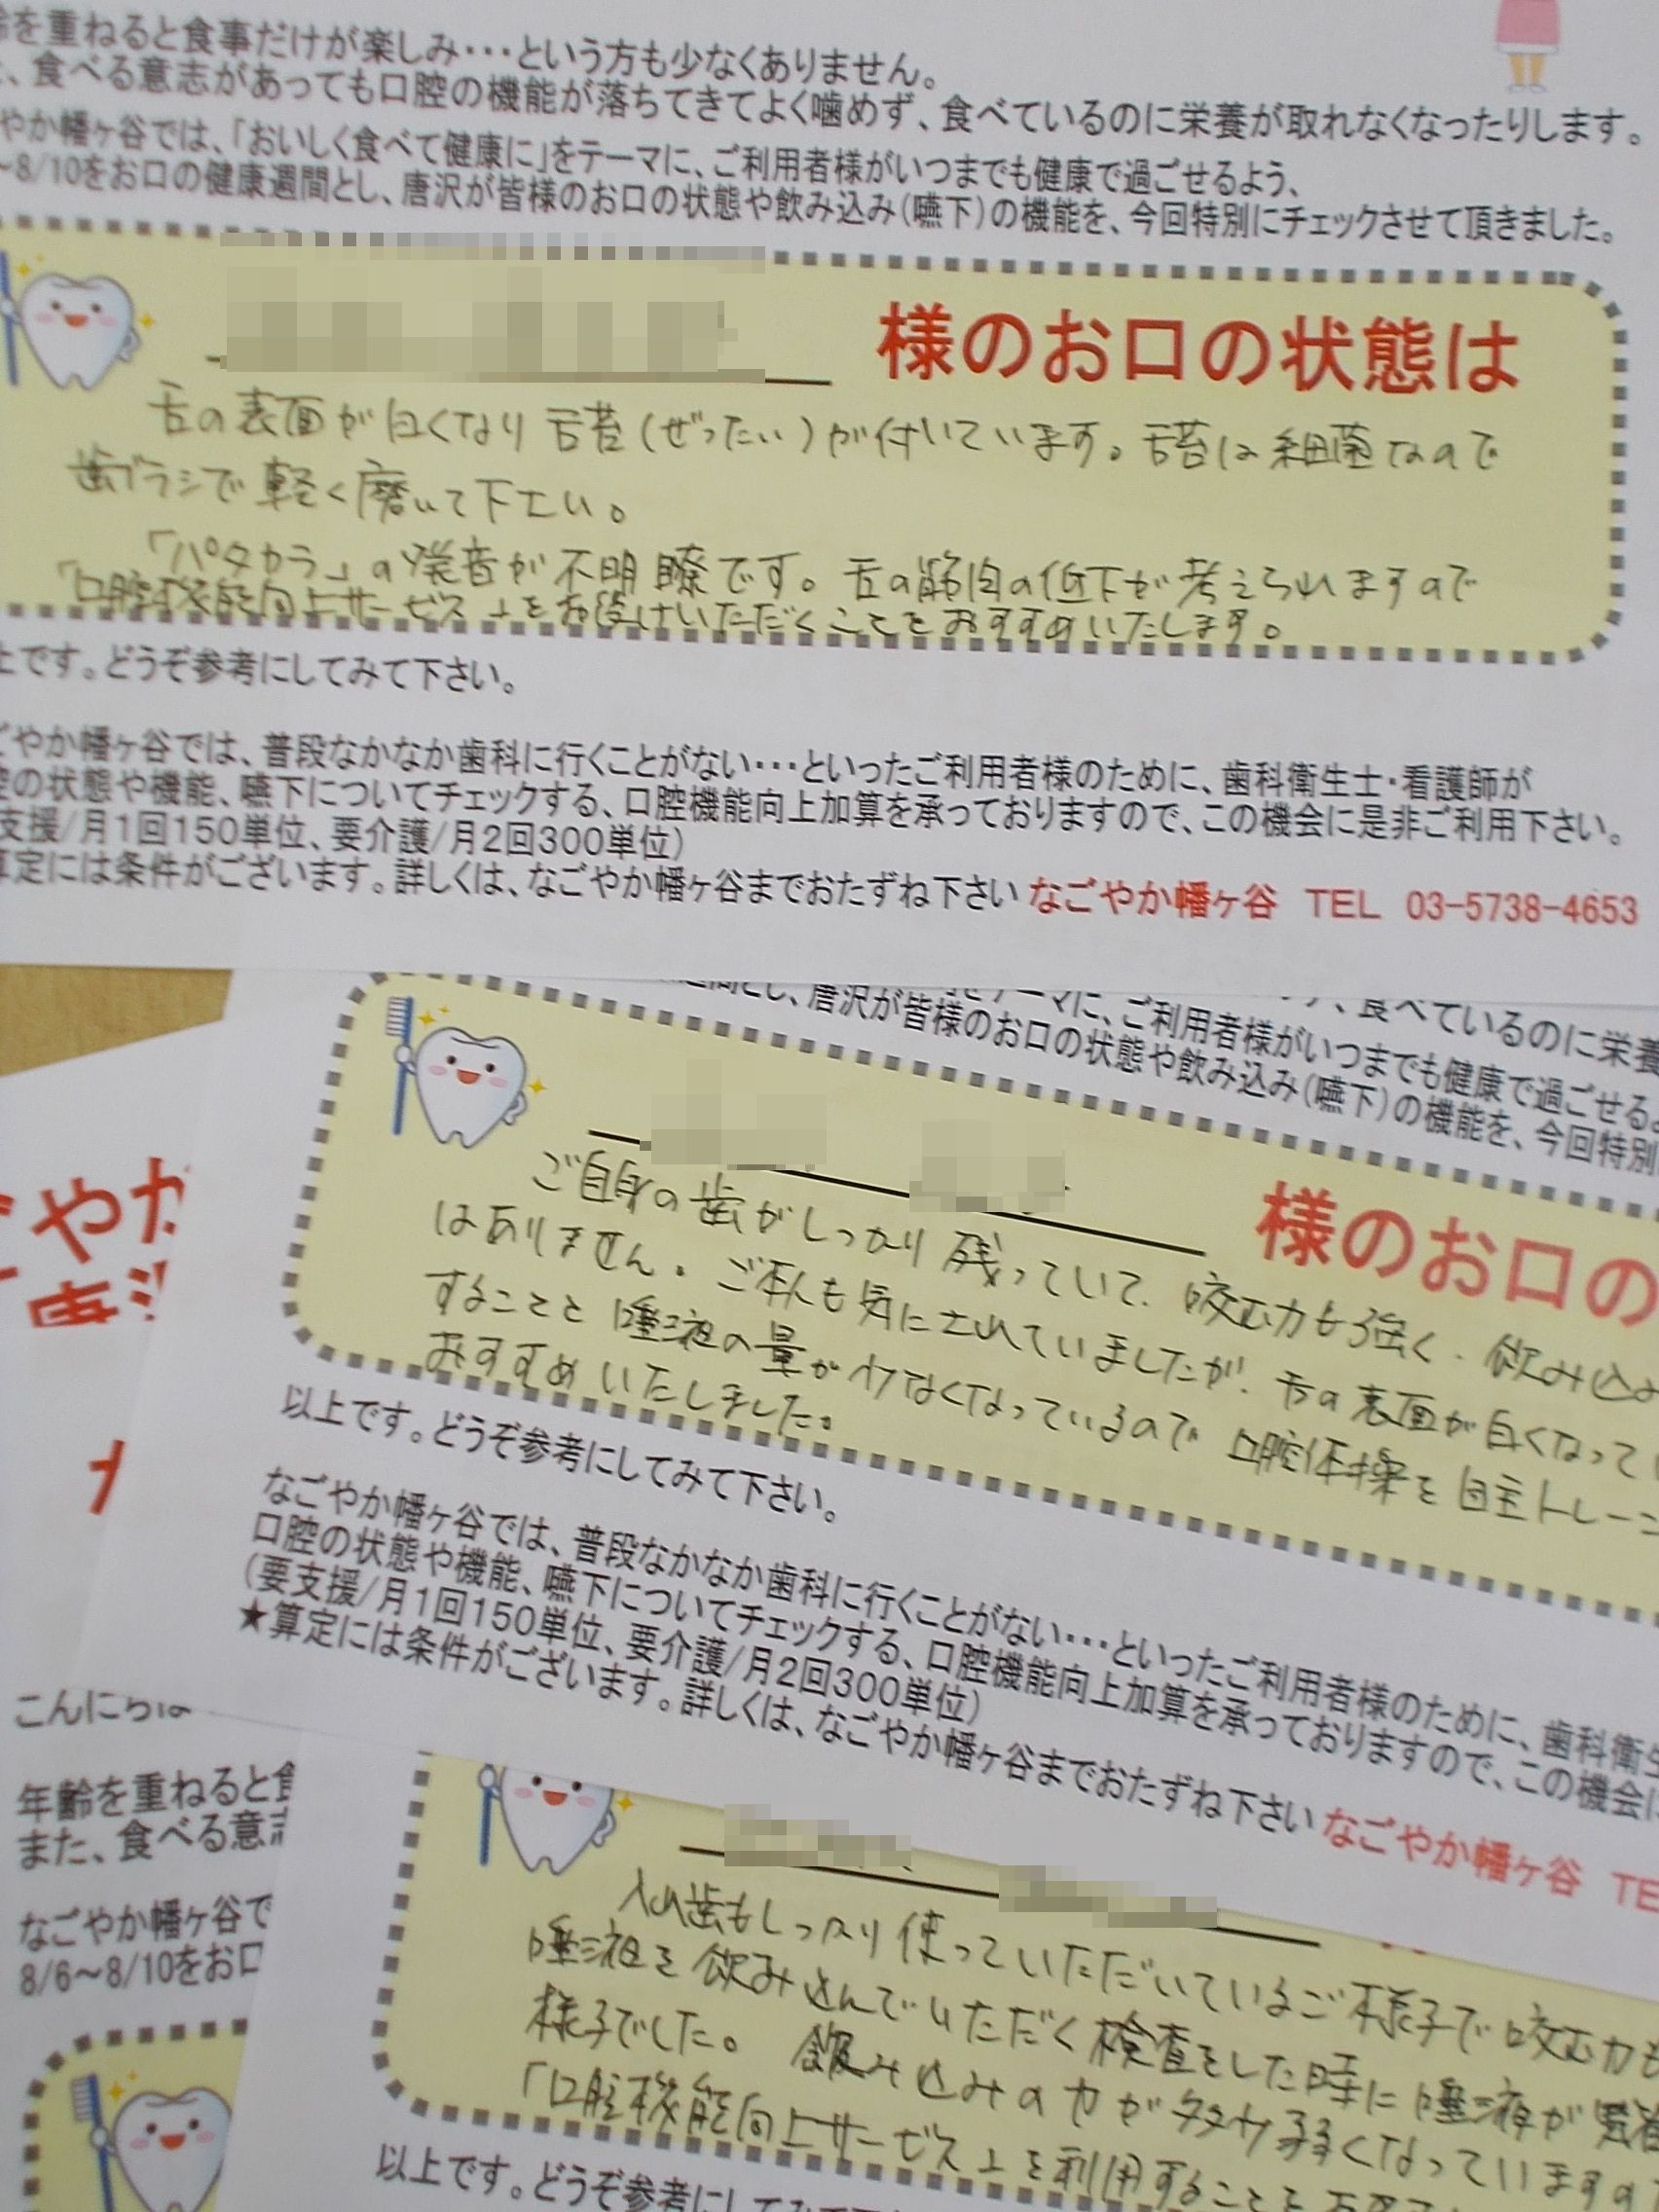 を重ねると食事だけが楽しみ・・・という方も少なくありません。
、食べる意志があっても口腔の機能が落ちてきてよく噛めず、食べているのに栄養が取れなくなったりします。
やか幡ヶ谷では、「おいしく食べて健康に」をテーマに、ご利用者様がいつまでも健康で過ごせるよう、
～8/10をお口の健康週間とし、唐沢が皆様のお口の状態や飲み込み（嚥下）の機能を、今回特別にチェックさせて頂きました。
様のお口の状態は
舌の表面が白くなり舌苔（ぜったい）が付いています。舌苔は細菌なので
歯ブラシで軽く磨いて下さい。
「パタカラ」の発音が不明瞭です。舌の筋肉の低下が考えられますので
「口腔機能向上サービス」をお受けいただくことをおすすめいたします。
上です。どうぞ参考にしてみて下さい。
ごやか幡ヶ谷では、普段なかなか歯科に行くことがない・・・といったご利用者様のために、歯科衛生士・看護師が
腔の状態や機能、嚥下についてチェックする、口腔機能向上加算を承っておりますので、この機会に是非ご利用下さい。
支援/月1回150単位、要介護/月2回300単位）
算定には条件がございます。詳しくは、なごやか幡ヶ谷までおたずね下さい なごやか幡ヶ谷 TEL 03-5738-4653
、食べているのに栄養
テーマに、ご利用者様がいつまでも健康で過ごせるよ
とし、唐沢が皆様のお口の状態や飲み込み（嚥下）の機能を、今回特別
様のお口の
ご自身の歯がしっかり残っていて、咬む力も強く、飲み込み
はありません。ご本人も気にされていましたが、舌の表面が白くなってい
することと唾液の量が少なくなっているので口腔体操を自主トレーニ
おすすめいたしました。
以上です。どうぞ参考にしてみて下さい。
なごやか幡ヶ谷では、普段なかなか歯科に行くことがない・・・といったご利用者様のために、歯科衛生
口腔の状態や機能、嚥下についてチェックする、口腔機能向上加算を承っておりますので、この機会に
（要支援/月1回150単位、要介護/月2回300単位）
★算定には条件がございます。詳しくは、なごやか幡ヶ谷までおたずね下さい なごやか幡ヶ谷 TE
ごやか
こんにちは
年齢を重ねると食
また、食べる意志
なごやか幡ヶ谷で
8/6～8/10をお口
入れ歯もしっかり使っていただいているご様子で咬む力も
唾液を飲み込んでいただく検査をした時に唾液が
様子でした。飲み込みの力が多少弱くなっていますの
「口腔機能向上サービス」を利用することを
以上です。どうぞ参考にしてみて下さ